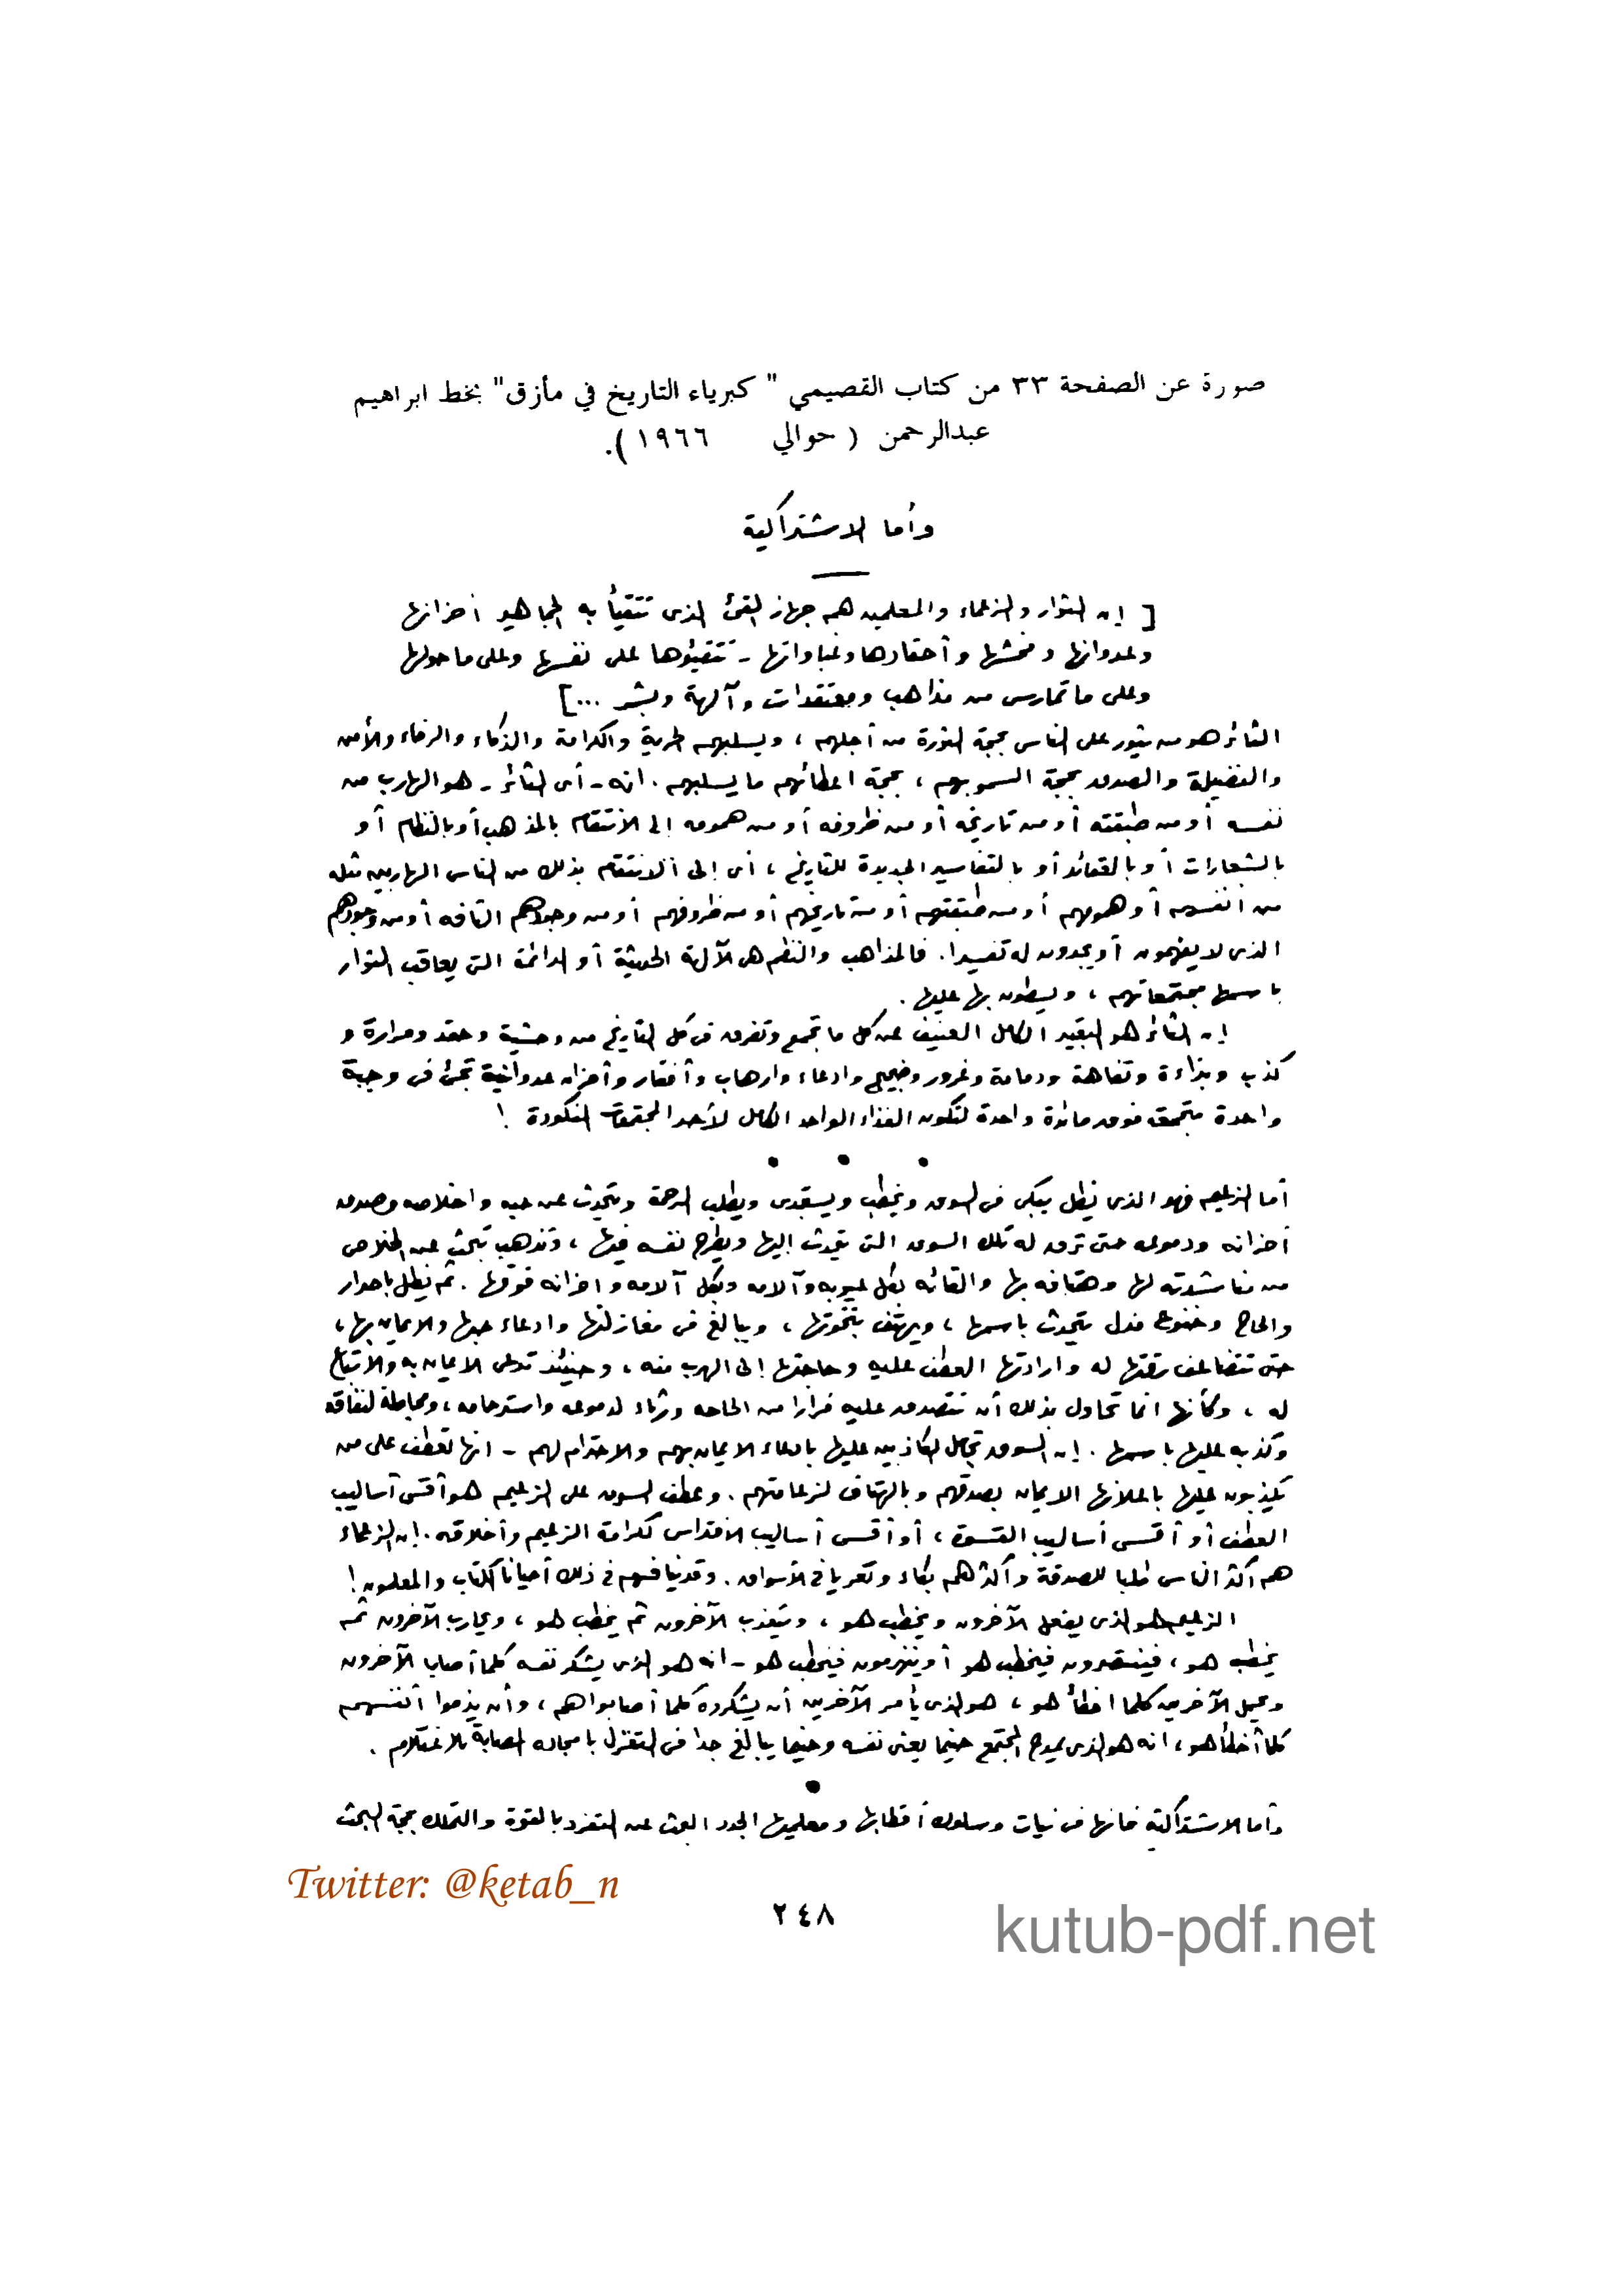 صورة عن الصفحة ٣٣ من كتاب القصيمي " كبرياء التاريخ في مأزق" بخط ابراهيم
عبدالرحمن ( حوالي ١٩٦٦ ).
وأما الاشتراكية
[ إن الثوار والزعماء والمعلمين هم جهاز القئ الذى تتقيأ به الجماهير أحزانها
وعدوانها وفحشها وأحقادها وغباواتها - تتقيؤها على نفسها وعلى ما حولها
وعلى ما تمارس من مذاهب ومعتقدات وآلهة وبشر ...]
الثائر هو من يثور على الناس بحجة الثورة من أجلهم ، ويسلبهم الحرية والكرامة والذكاء والرخاء والأمن
والفضيلة والصدق بحجة السمو بهم ، بحجة اعطائهم ما يسلبهم . انه - أى الثائر - هو الهارب من
نفسه أو من طبقته أو من تاريخه أو من ظروفه أو من همومه إلى الانتقام بالمذهب أو بالنظام أو
بالشعارات أو بالعقائد أو بالتفاسير الجديدة للتاريخ ، أى إلى الانتقام بذلك من الناس الهاربين مثله
من أنفسهم أو همومهم أو من طبقتهم أو من تاريخهم أو من ظروفهم أو من وجودهم التافه أو من وجودهم
الذى لا يفهمون أو يجدون له تفسيرا . فالمذاهب والنظم هى الآلهة الحديثة أو الدائمة التى يعاقب الثوار
باسمها مجتمعاتهم ، ويسطون بها عليها .
إن الثائر هو التعبير الكامل العنيف عن كل ما تجمع وتفرق فى كل التاريخ من وحشية وحقد ومرارة و
كذب وبذاءة وتفاهة ودمامة وغرور وضجيج وادعاء وارهاب وأفكار وأحزان عدوانية تجئ فى وجبة
واحدة متجمعة فوق مائدة واحدة لتكون الغذاء الواحد الكامل لأحد المجتمعات المنكودة !
• • •
أما الزعيم فهو الذى يظل يبكى فى السوق ويخطب ويستجدى ويطلب الرحمة ويتحدث عن حبه واخلاصه وصدق
أحزانه ودموعه حتى ترق له تلك السوق التى يتحدث اليها ويطرح نفسه فيها ، وتذهب تبحث عن الخلاص
من مناشدته لها وهتافه بها والقائه بكل عيوبه وآلامه وبكل آلامه واحزانه فوقها . ثم يظل باصرار
والحاح وخنوع مذل يتحدث باسمها ، ويهتف بنخوتها ، ويبالغ فى مغازلتها وادعاء حبها والايمان بها ،
حتى تتضاعف رقتها له وارادتها العطف عليه وحاجتها إلى الهرب منه ، وحينئذ تدعى الايمان به والاتباع
له ، وكأنها انما تحاول بذلك أن تتصدق عليه فرارا من الحاحه ورثاء لدموعه واسترحامه ، ومجاملة لنفاقه
وكذبه عليها باسمها . إن السوق تجامل الكاذبين عليها بادعاء الايمان بهم والاحترام لهم - انها تعطف على من
يكذبون عليها باعلانها الايمان بصدقهم وبالهتاف لزعامتهم . وعطف السوق على الزعيم هو أقسى أساليب
العطف أو أقسى أساليب القسوة ، أو أقسى أساليب الافتراس لكرامة الزعيم وأخلاقه . إن الزعماء
هم أكثر الناس طلبا للصدقة وأكثرهم بكاء وتعريا فى الأسواق . وقد ينافسهم فى ذلك أحيانا الكتاب والمعلمون !
الزعيم هو الذى يفعل الآخرون ويخطب هو ، ويتعذب الآخرون ثم يخطب هو ، ويحارب الآخرون ثم
يخطب هو ، فينتصرون فيخطب هو أو ينهزمون فيخطب هو - انه هو الذى يشكر نفسه كلما أصاب الآخرون
الآخرين كلما اخطأ هو ، هو الذى يأمر الآخرين أن يشكروه كلما أصابوا هم ، وأن يذموا أنفسهم
كلما أخطأ هو ، انه هو الذى يمدح المجتمع حينما يعنى نفسه وحينما يبالغ جدا فى التغزل بامجاده المصابة بالاحتلام .
•
وأما الاشتراكية فانها فى نيات وسلوك أقطابها ومعلميها الجدد البحث عن التفرد بالقوة والتملك بحجة البحث
Twitter: @ketab_n
٢٤٨
kutub-pdf.net